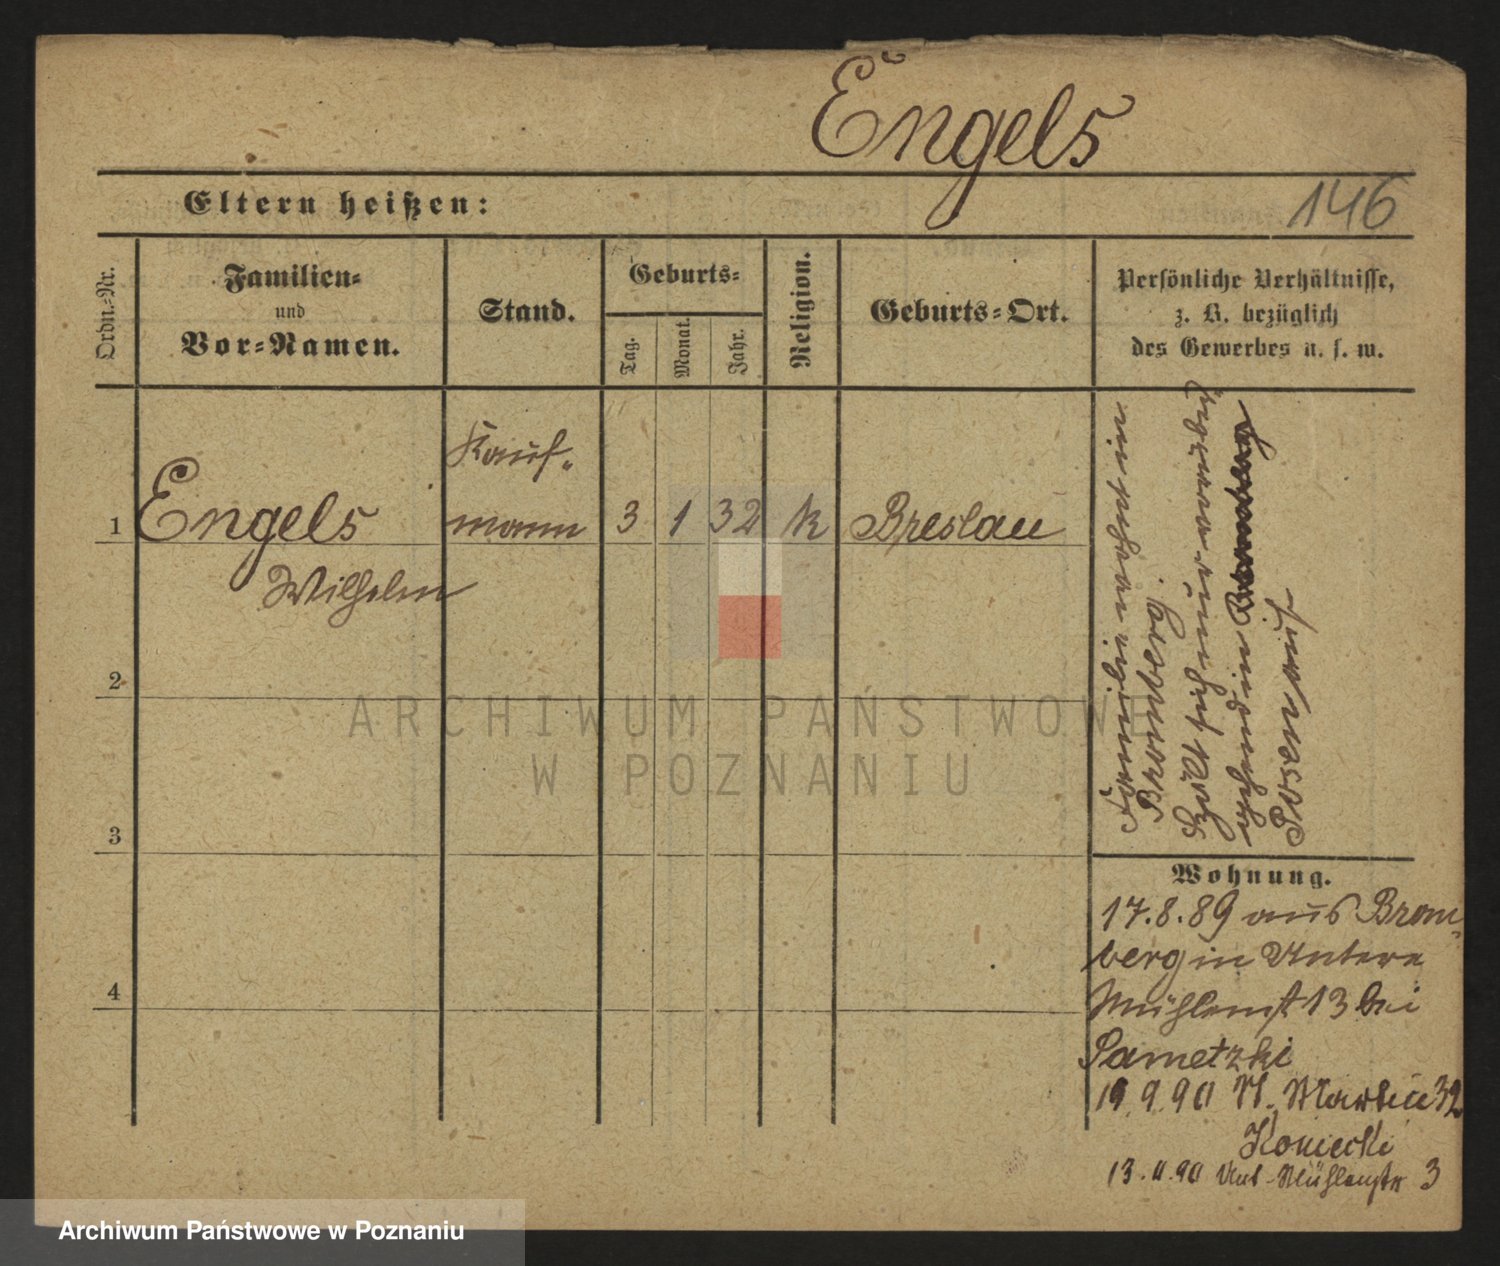 Engels
146
Eltern heißen:
Ordn.-Nr.
Familien-
und
Vor-Namen.
Stand.
Geburts-
Tag.
Monat.
Jahr.
Religion.
Geburts-Ort.
Persönliche Verhältnisse,
z. B. bezüglich
des Gewerbes u. s. w.
1
Engels
Wilhelm
Kauf-
mann
3
1
32
k
Breslau
2
3
4
Bromberg
Posen
Wohnung.
17.8.89 aus Brom-
berg in Untere
Mühlenst 13 bei
Sametzki
19.9.90 St. Martin 32
Koniecki
13.11.90 Unt. Mühlenstr 3
ARCHIWUM PAŃSTWOWE
W POZNANIU
Archiwum Państwowe w Poznaniu